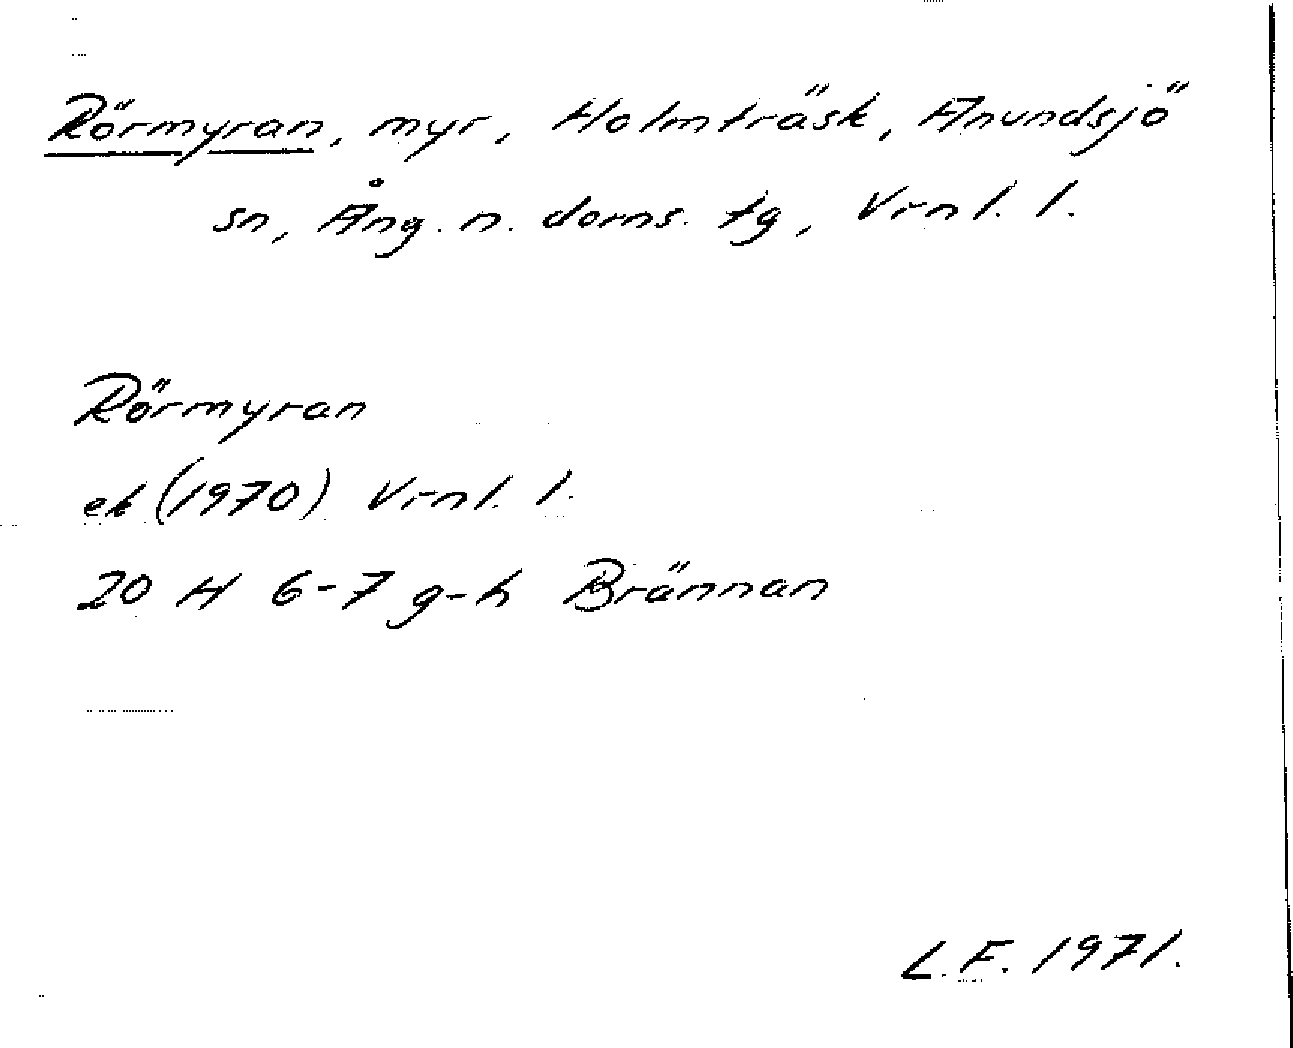 Rörmyran, myr, Holmträsk, Anundsjö
sn, Ång. n. doms. tg, Vrnl. l.
Rörmyran
ek (1970) Vrnl. l.
20 H 6-7 g-h Brännan
L.F. 1971.